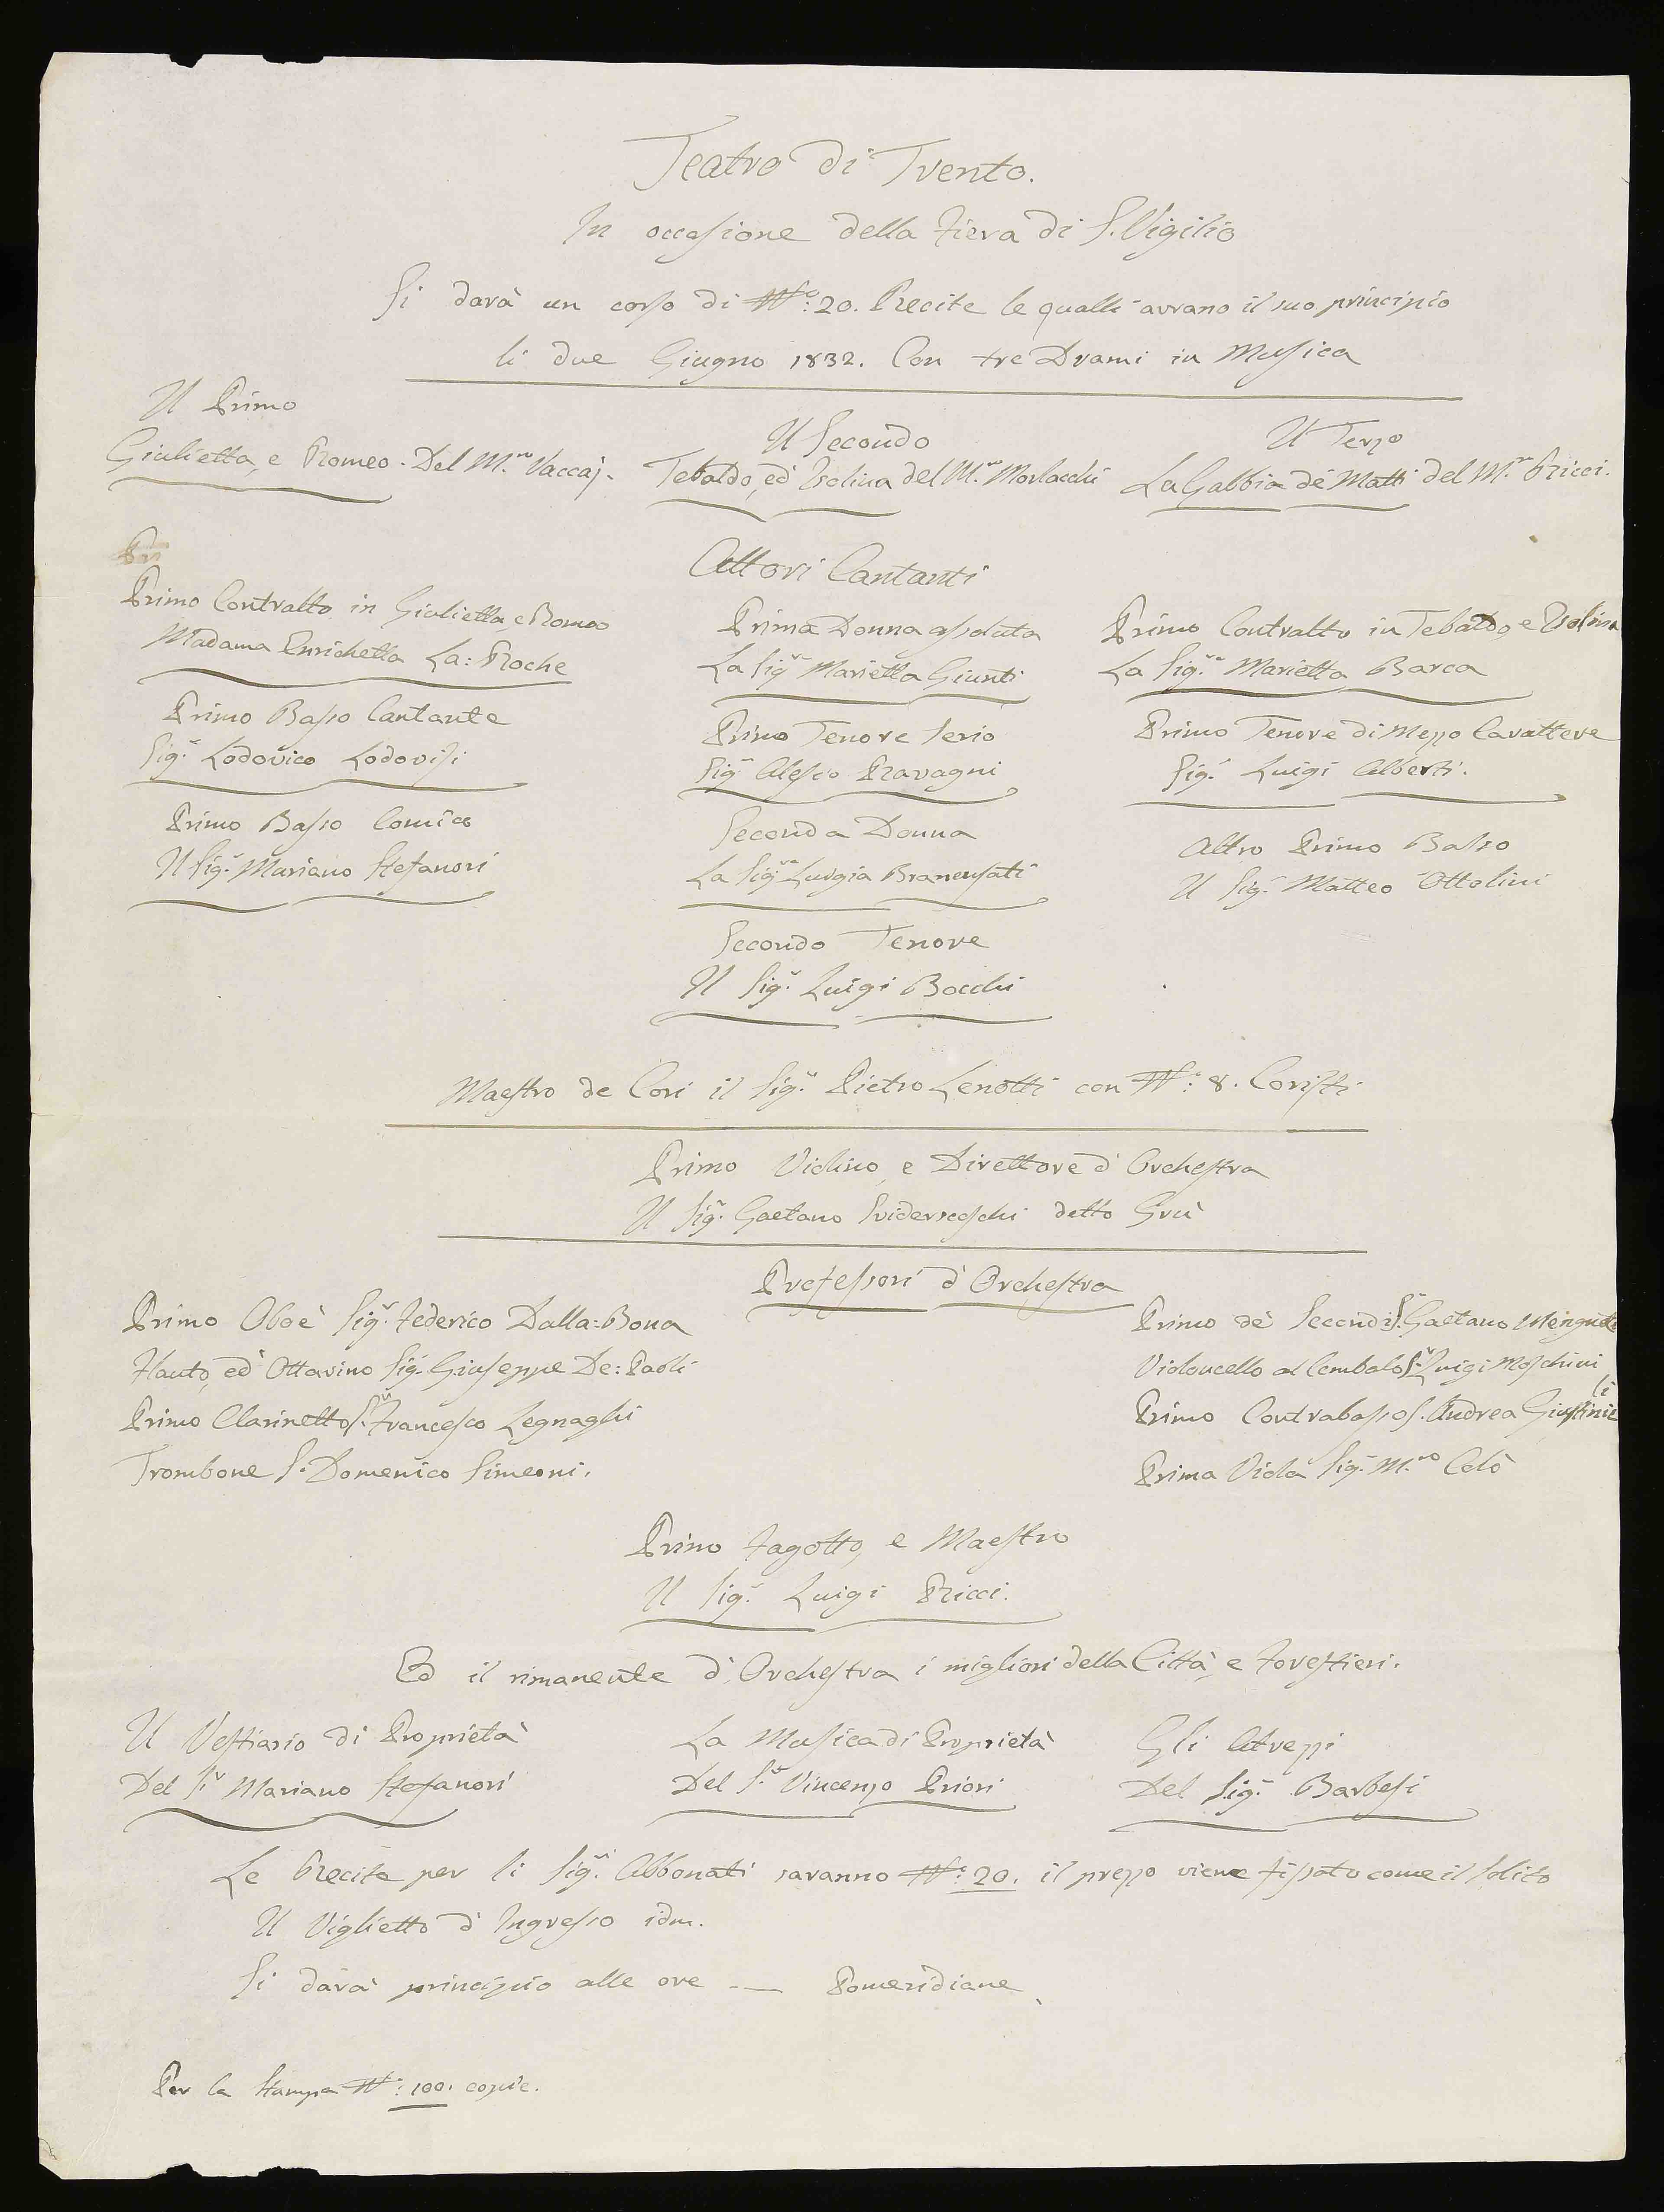 Teatro di Trento.
In occasione della Fiera di S. Vigilio
Si darà un corso di N.°: 20. Recite le qualli avrano il suo principio
li due Giugno 1832. Con tre Drami in Musica
Il Primo
Giulietta, e Romeo. Del M.ro Vaccaj.
Il Secondo
Tebaldo, ed Isolina del M.ro Morlacchi
Il Terzo
La Gabbia dè Matti del M.ro Ricci.
Pri
Attori Cantanti
Primo Contralto in Giulietta, e Romeo
Madama Enrichetta La: Roche
Primo Basso Cantante
Sig.r Lodovico Lodovisi
Primo Basso Comico
Il Sig.r Mariano Stefanori
Prima Donna assoluta
La Sig.ra Marietta Giunti
Primo Tenore Serio
Sig.r Alessio Ravagni
Seconda Donna
La Sig.ra Luigia
Secondo Tenore
Il Sig.r Luigi Bocchi
Primo Contralto in Tebaldo, e Isolina
La Sig.ra Marietta Barca
Primo Tenore di Mezzo Carattere
Sig.r Luigi Alberti.
Altro Primo Basso
Il Sig.r Matteo Ottolini
Maestro de Cori il Sig.r Pietro Lenotti con N.°: 8. Coristi
Primo Violino, e Direttore d'Orchestra
Il Sig.r Gaetano detto Grù
Professori d'Orchestra
Primo Oboè Sig.r Federico Dalla=Bona
Flauto, ed Ottavino Sig.r Giuseppe De: Paoli
Primo Clarinetto S.r Francesco Legnaghi
Trombone S.r Domenico Simeoni.
Primo dè Secondi S.r Gaetano
Violoncello al Cembalo S.r Luigi Moschini
Primo Contrabasso S. Andrea
Prima Viola Sig.r M.ro Celò
Primo Fagotto, e Maestro
Il Sig.r Luigi Ricci.
Ed il rimanente d'Orchestra i migliori della Città, e Forestieri.
Il Vestiario di Proprietà
Del S.r Mariano Stefanori
La Musica di Proprietà
Del S.r Vincenzo Priori
Gli Atrezzi
Del Sig.r Barbesi
Le Recite per li Sig.ri Abbonati saranno N.°: 20. il prezzo viene fissato come il solito
Il Viglietto d'Ingresso idm.
Si darà principio alle ore -- — Pomeridiane
Per la Stampa N.°: 100. copie.